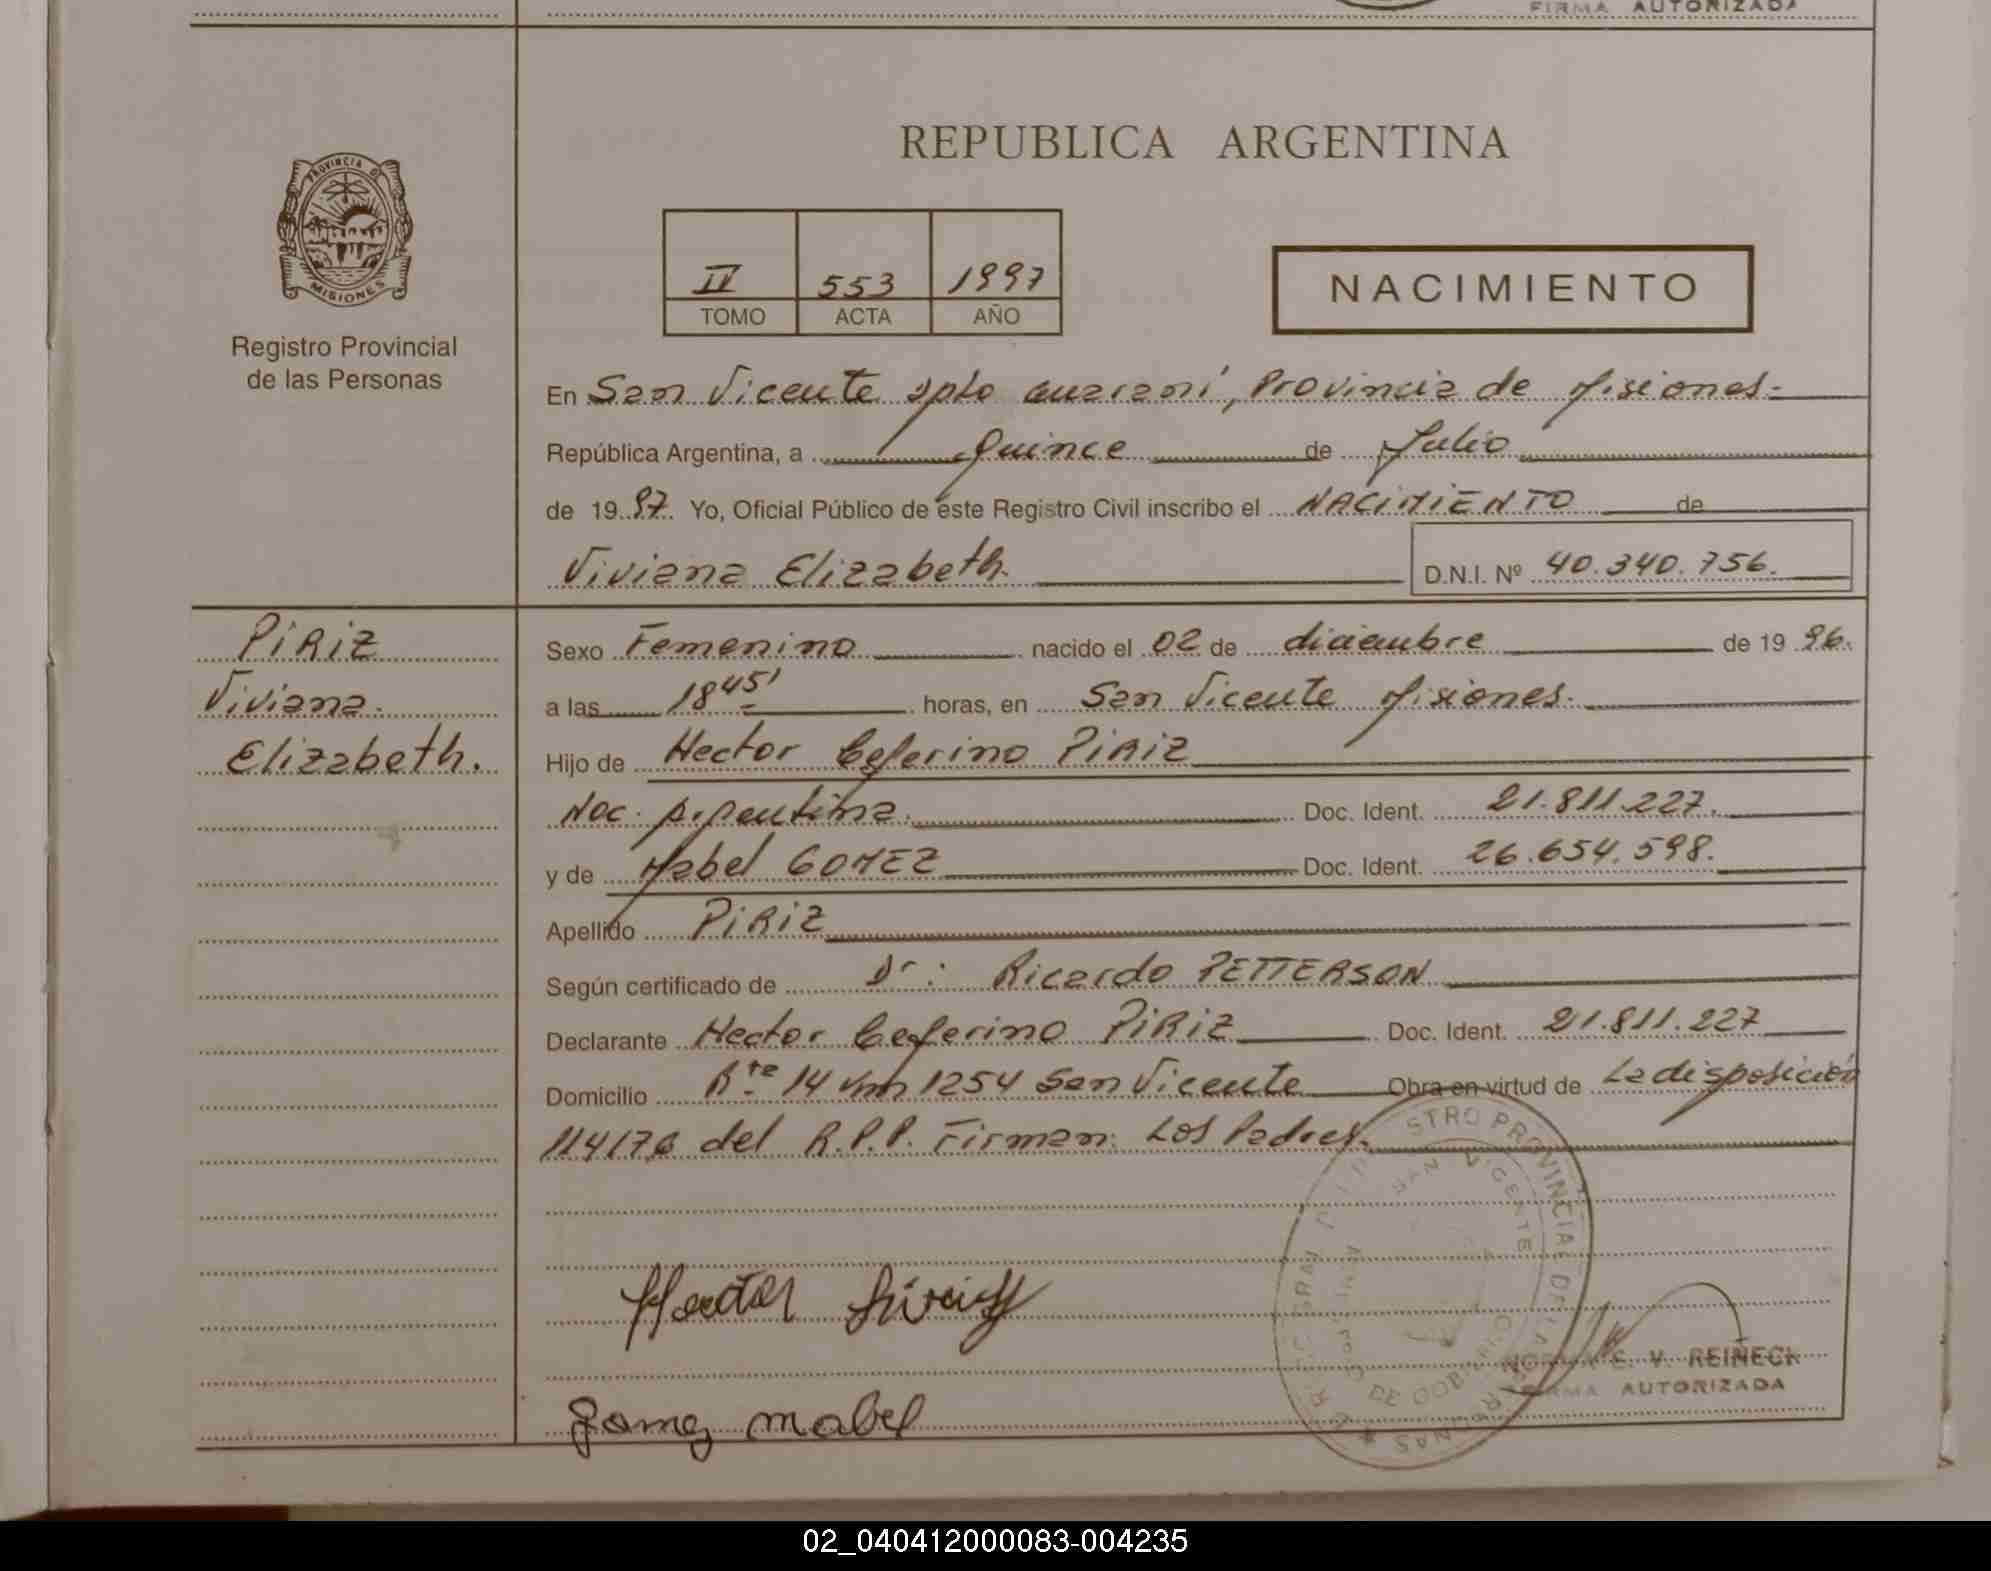 FIRMA AUTORIZADA
PROVINCIA DE
MISIONES
Registro Provincial
de las Personas
REPUBLICA ARGENTINA
II 553 1997
TOMO ACTA AÑO
NACIMIENTO
En San Vicente dpto Guaraní, Provincia de Misiones.-
República Argentina, a Quince de Julio
de 1997. Yo, Oficial Público de este Registro Civil inscribo el NACIMIENTO de
Viviana Elizabeth. D.N.I. Nº 40.340.756.
PIRIZ
Viviana.
Elizabeth.
Sexo Femenino nacido el 02 de diciembre de 1996.
a las 18 45' horas, en San Vicente Misiones.
Hijo de Hector Ceferino PIRIZ
Nac. Argentina. Doc. Ident. 21.811.227.
y de Mabel GOMEZ Doc. Ident. 26.654.598.
Apellido PIRIZ
Según certificado de Dr: Ricardo PETTERSON
Declarante Hector Ceferino PIRIZ Doc. Ident. 21.811.227
Domicilio Rte 14 km 1254 San Vicente Obra en virtud de La disposición
114/76 del R.P.P. Firman: Los Padres.
SAN VICENTE
Hector
Gomez Mabel
E. V. REINECK
FIRMA AUTORIZADA
02_040412000083-004235